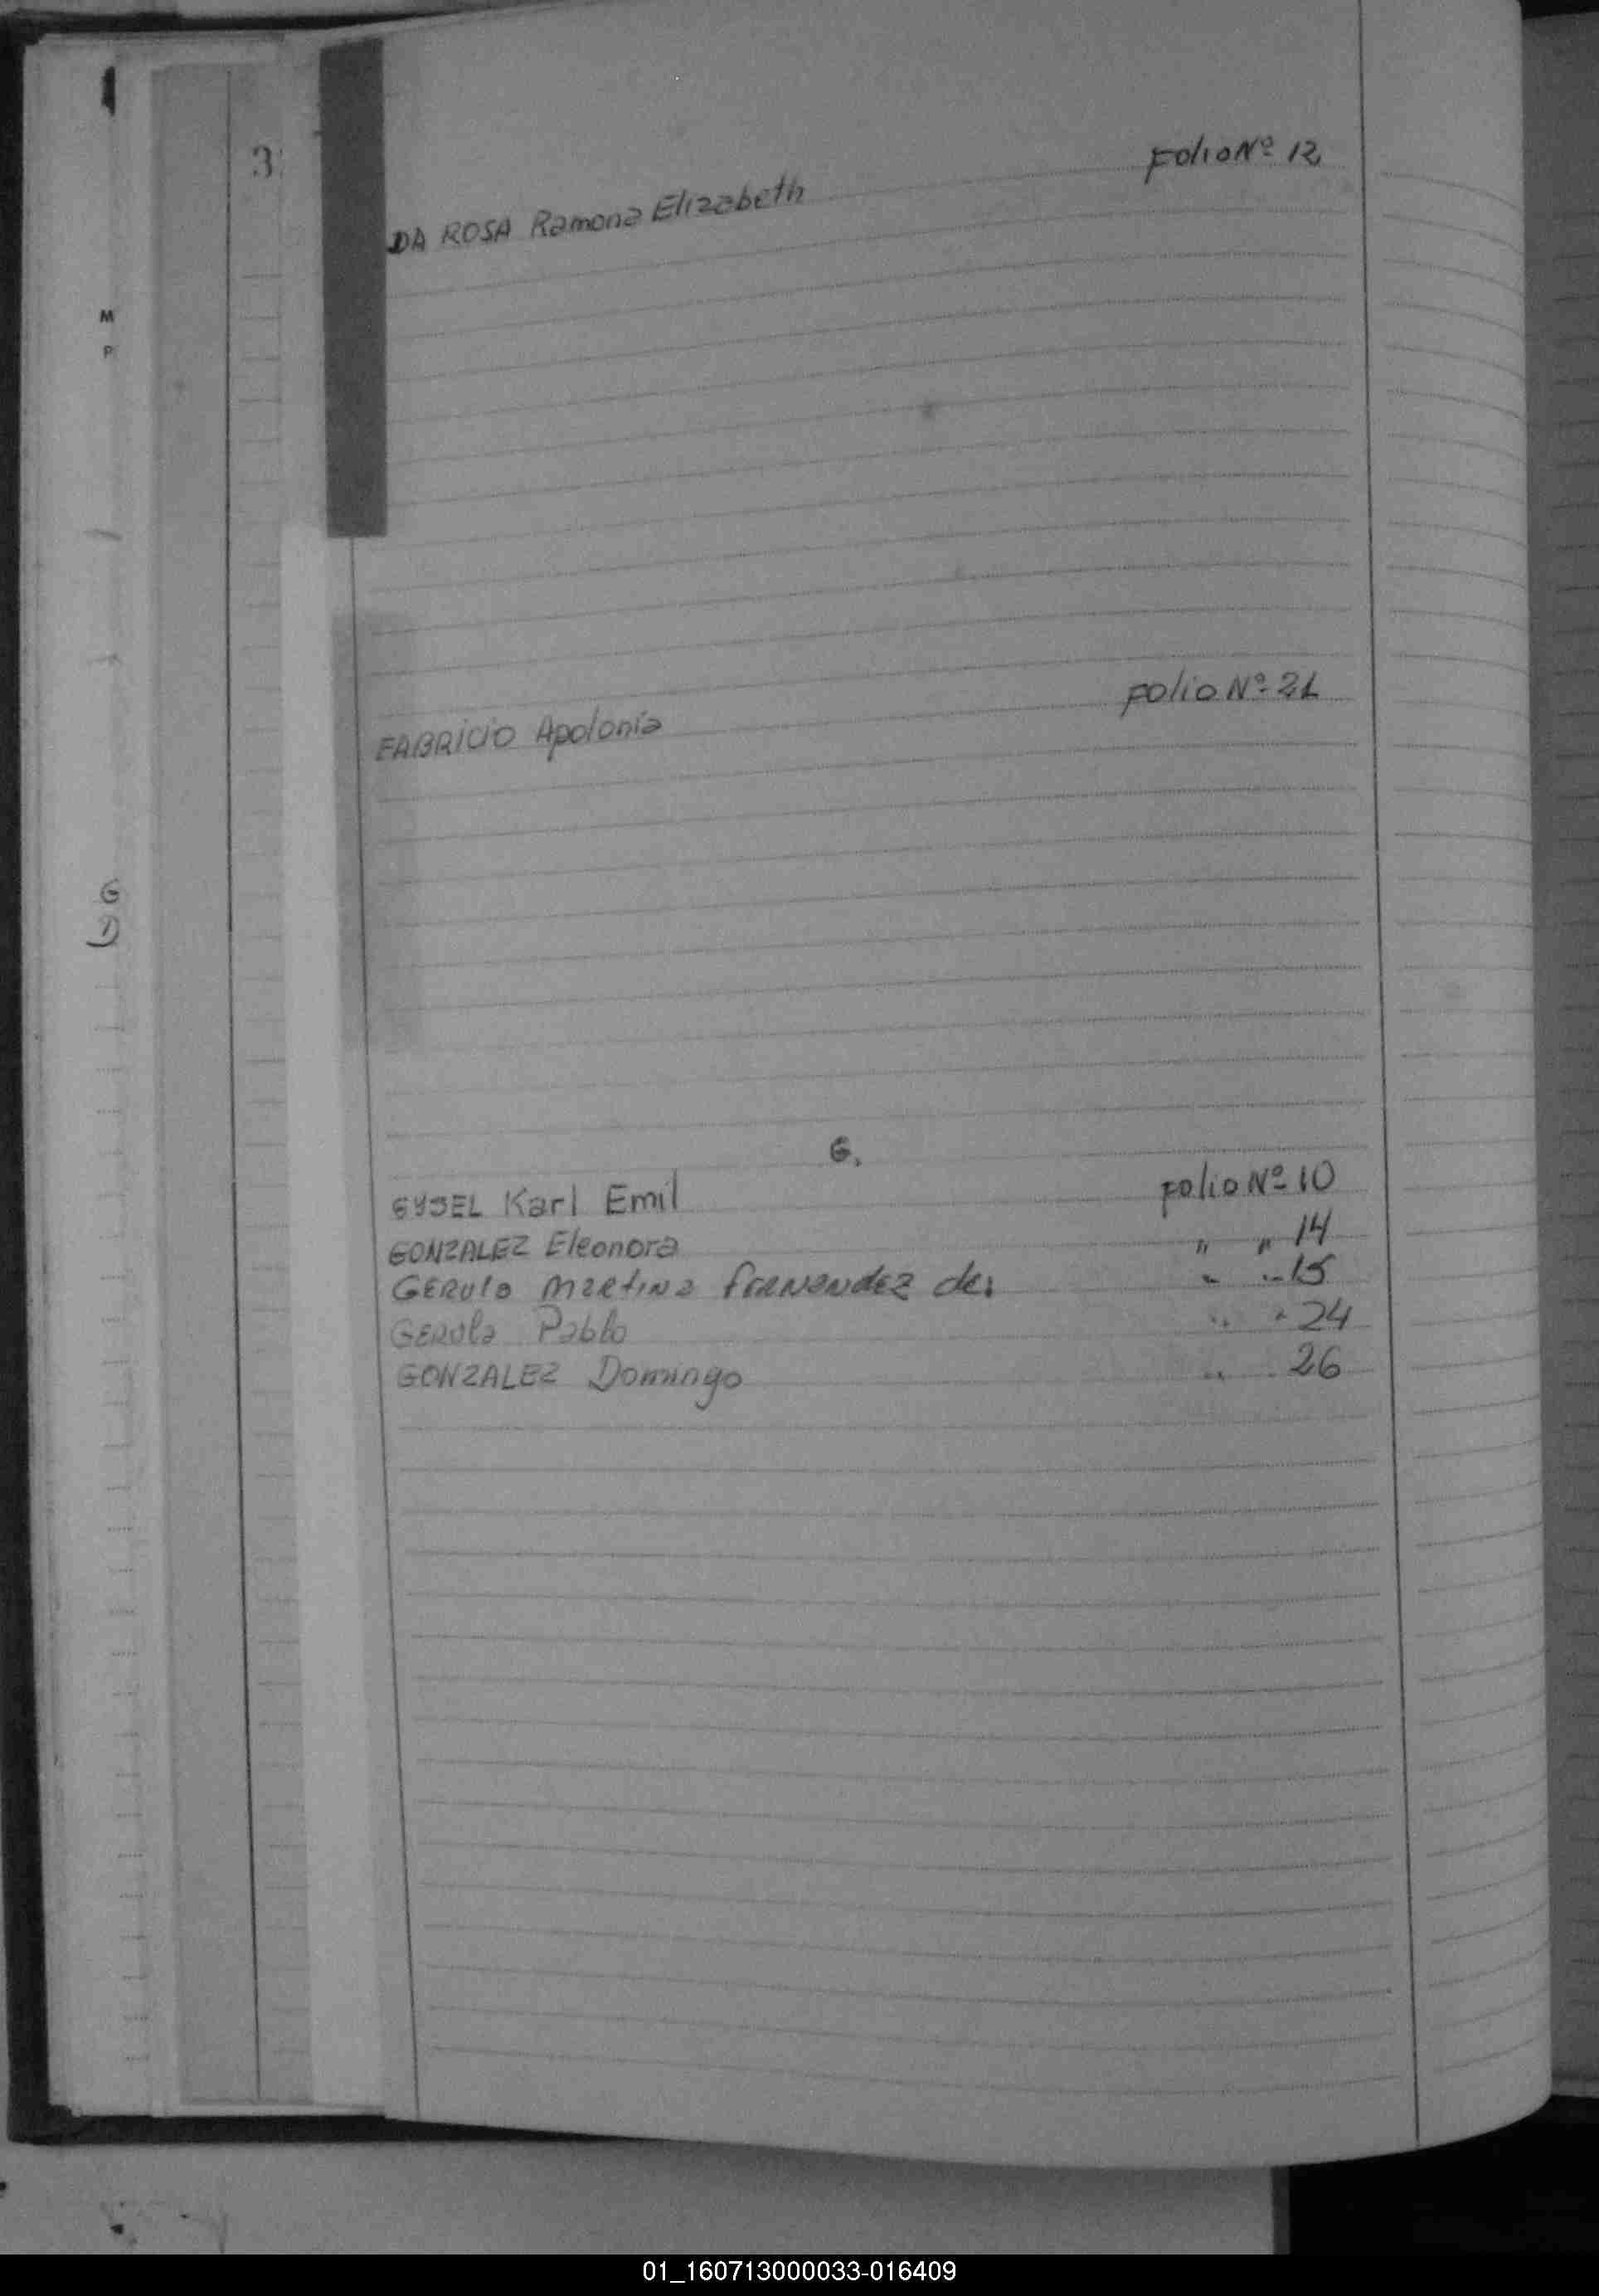 3
DA ROSA Ramona Elizabeth Folio Nº 12
M
P
FABRICIO Apolonia Folio Nº 21
G
G.
GYSEL Karl Emil Folio Nº 10
GONZALEZ Eleonora " " 14
GERULO Martina FERNANDEZ de. " " 15
GEROLA Pablo " " 24
GONZALEZ Domingo " " 26
01_160713000033-016409